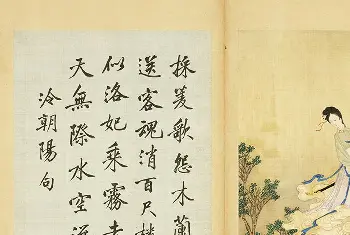 採菱歌怨木蘭
送客魂消百尺樓
似洛妃乘霧去
天無際水空流
冷朝陽句